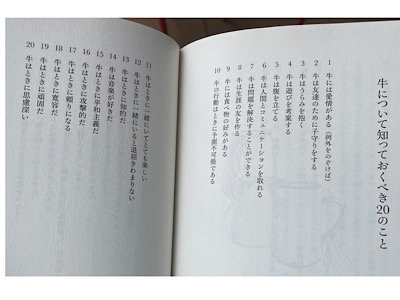 牛について知っておくべき20のこと
1 牛には愛情がある（例外をのぞけば）
2 牛は友達のために子守りをする
3 牛はうらみを抱く
4 牛は遊びを考案する
5 牛は腹を立てる
6 牛は人間とコミュニケーションを取れる
7 牛は問題を解決することができる
8 牛は生涯の友を作る
9 牛には食べ物の好みがある
10 牛の行動はときに予測不可能である
11 牛はときに一緒にいてとても楽しい
12 牛はときに一緒にいると退屈きわまりない
13 牛はときに知的だ
14 牛は音楽が好きだ
15 牛はときに平和主義だ
16 牛はときに攻撃的だ
17 牛はときに頼りになる
18 牛はときに寛容だ
19 牛はときに頑固だ
20 牛はときに思慮深い